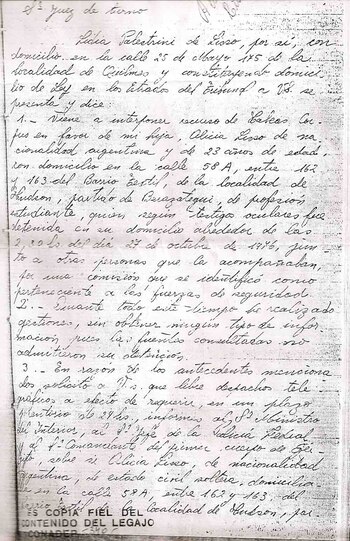 Sr Juez de turno
Lidia Palestrini de Lisso, por sí, con
domicilio en la calle 25 de Mayo 175 de la
localidad de Quilmes y constituyendo domici
lio de ley en los estrados del Tribunal a V.S. se
presenta y dice:
1.- Viene a interponer recurso de habeas cor
pus en favor de mi hija, Alicia Lisso de na
cionalidad argentina y de 23 años de edad,
con domicilio en la calle 58 A, entre 162
y 163 del Barrio, de la localidad de
Hudson, partido de Berazategui, de profesión
estudiante, quien según testigos oculares fue
detenida en su domicilio alrededor de las
hs del día 27 de octubre de 1976, jun
to a otras personas que la acompañaban,
por una comisión que se identificó como
perteneciente a las fuerzas de seguridad.
2.- Durante todo este tiempo he realizado
gestiones, sin obtener ningún tipo de infor
mación, pues las fuentes consultadas no
admitieron su detención.
3.- En razón de los antecedentes menciona
dos solicito a V.S. que libre despachos tele
gráficos a efecto de requerir, en un plazo
perentorio de hs, informes al Sr Ministro
del Interior, al Sr Jefe de la Policía Federal,
al Sr Comandante del primer cuerpo de Ejér
sobre si Alicia Lisso, de nacionalidad
argentina, de estado civil soltera, domicilia
en la calle 58 A, entre 162 y 163, del
localidad de Hudson, par
ES COPIA FIEL DEL
CONTENIDO DEL LEGAJO
CONADEP